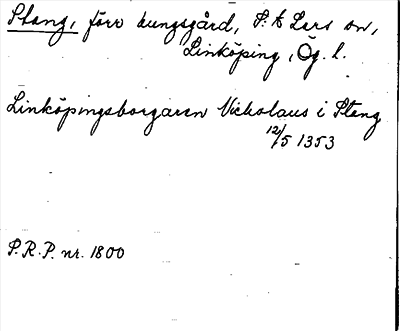 Stang, förr kungsgård, S:t Lars sn,
Linköping, Ög. l.
Linköpingsborgaren Nicholaus i Stang
12/5 1353
S.R.P. nr. 1800